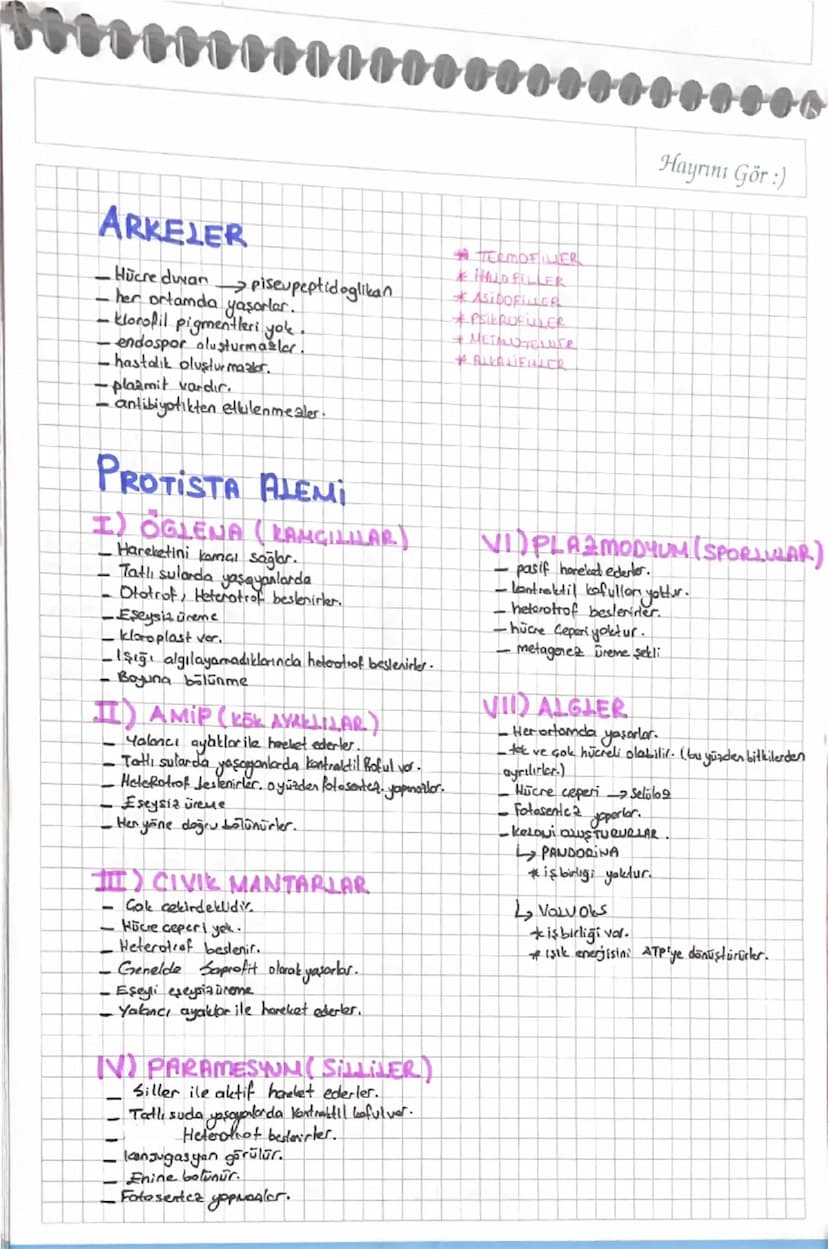 Hayrını Gör :)
ARKELER
— Hücre duvarı → pisevpeptidoglikan
— her ortamda yaşarlar.
— klorofil pigmentleri yok.
— endospor oluşturmazlar.
— hastalık oluşturmazlar.
— plazmit vardır.
— antibiyotikten etkilenmezler.
* TERMOFİLLER
* HALOFİLLER
* ASİDOFİLLER
* PSİKROFİLLER
* METANOJENLER
* ALKALİFİLLER
PROTİSTA ALEMİ
I) ÖGLENA (KAMÇILILAR)
— Hareketini kamçı sağlar.
— Tatlı sularda yaşayanlarda
— Ototrof, Heterotrof beslenirler.
— Eşeysiz üreme
— kloroplast var.
— Işığı algılayamadıklarında heterotrof beslenirler.
— Boyuna bölünme
II) AMİP (KÖK AYAKLILAR)
— Yalancı ayaklar ile hareket ederler.
— Tatlı sularda yaşayanlarda kontraktil koful var.
— Heterotrof beslenirler. o yüzden fotosentez yapmazlar.
— Eşeysiz üreme
— Her yöne doğru bölünürler.
III) CIVIK MANTARLAR
— Çok çekirdeklidir.
— Hücre çeperi yok.
— Heterotrof beslenir.
— Genelde Saprofit olarak yaşarlar.
— Eşeyli eşeysiz üreme
— Yalancı ayaklar ile hareket ederler.
IV) PARAMESYUM (SİLLİLER)
— Siller ile aktif hareket ederler.
— Tatlı suda yaşayanlarda kontraktil koful var.
— Heterotrof beslenirler.
— konjugasyon görülür.
— Enine bölünür.
— Fotosentez yapmazlar.
VI) PLAZMODYUM (SPORLULAR)
— pasif hareket ederler.
— kontraktil kofulları yoktur.
— heterotrof beslenirler.
— hücre çeperi yoktur.
— metagenez üreme şekli
VII) ALGLER
— Her ortamda yaşarlar.
— tek ve çok hücreli olabilir. (bu yüzden bitkilerden
ayrılırlar.)
— Hücre çeperi → Selüloz
— Fotosentez yaparlar.
— KOLONİ OLUŞTURURLAR.
↳ PANDORİNA
* işbirliği yoktur.
↳ VOLVOKS
* işbirliği var.
* ışık enerjisini ATP'ye dönüştürürler.